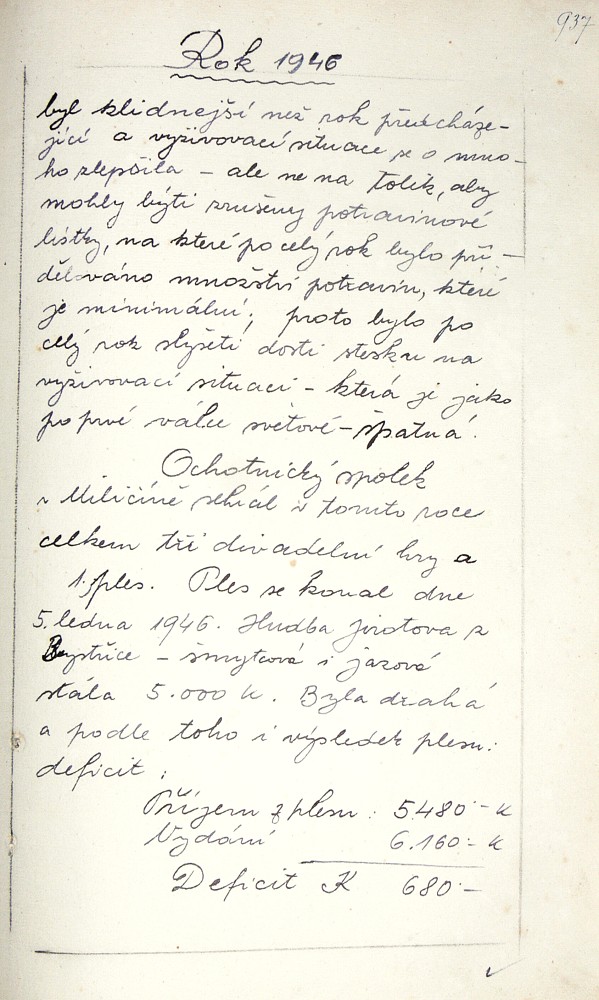 937
Rok 1946
byl klidnejší než rok předcháze-
jící a vyživovací situace se o mno-
ho zlepšila - ale ne na tolik, aby
mohly býti zrušeny potravinové
lístky, na které po celý rok bylo při-
dělováno množství potravin, které
je minimální; proto bylo po
celý rok slyšeti dosti stesku na
vyživovací situaci - která je jako
po prvé válce světové - špatná.
Ochotnický spolek
v Miličíně sehrál v tomto roce
celkem tři divadelní hry a
1. ples. Ples se konal dne
5. ledna 1946. Hudba Jirotova z
Bystřice - smytcová i jazová
stála 5.000 K. Byla drahá
a podle toho i výsledek plesu:
deficit;
Příjem z plesu: 5480·- K
Vydání 6.160·- K
Deficit K 680·-